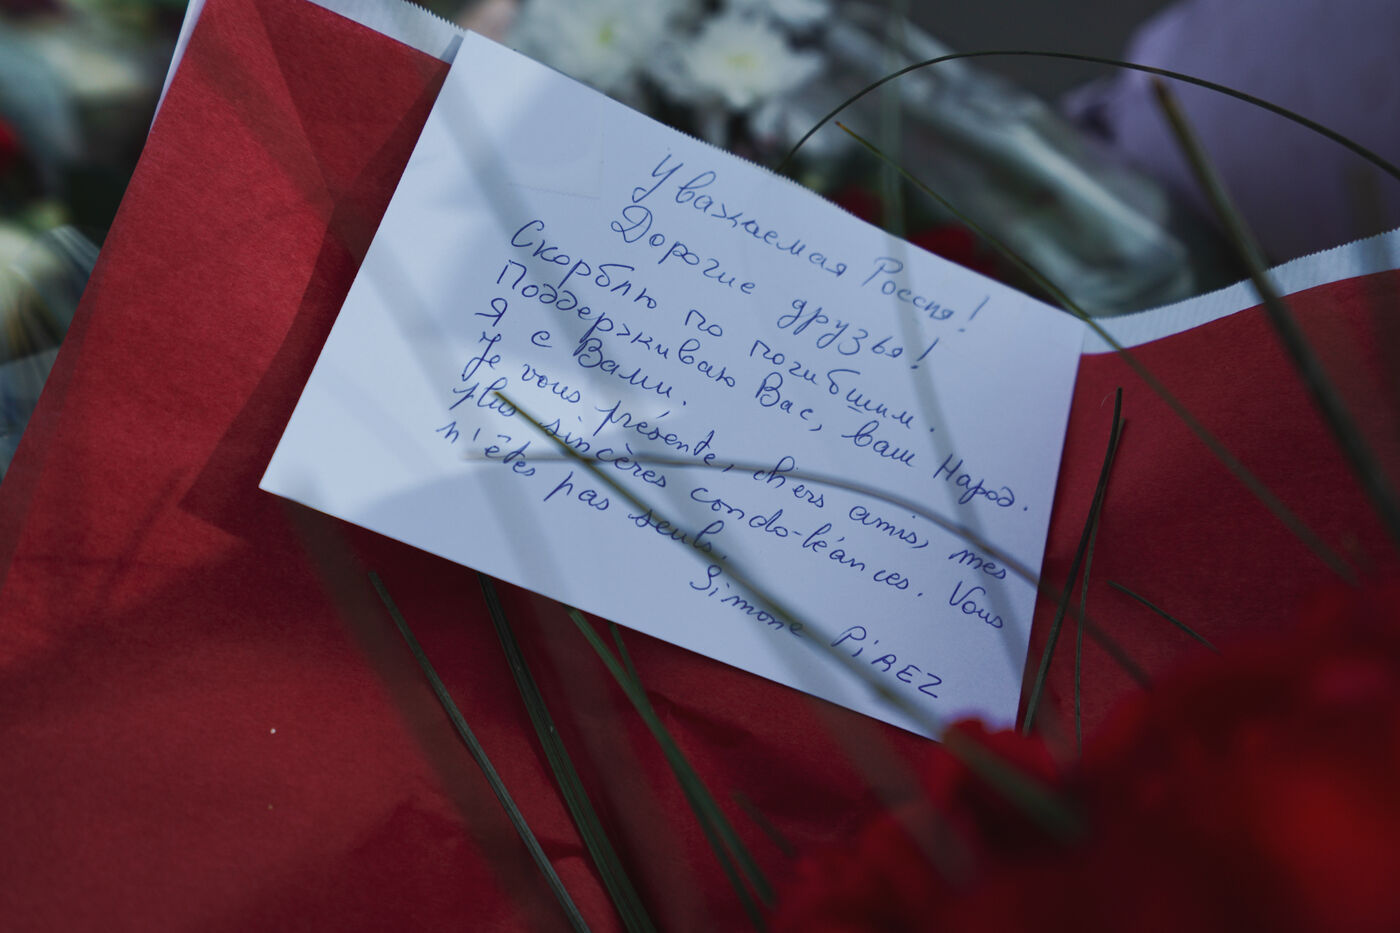 Уважаемая Россия!
Дорогие друзья!
Скорблю по погибшим.
Поддерживаю Вас, ваш Народ.
Я с Вами.
Je vous présente, chers amis, mes
plus sincères condo-léances. Vous
n'êtes pas seuls.
Simone PiREZ